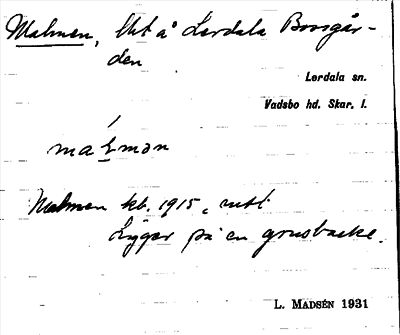 Malmen, Ut å Lerdala Bossgår-
den
Lerdala sn.
Vadsbo hd. Skar. l.
malmən
Malmen kb. 1915,
Ligger på en grusbacke.
L. MADSÉN 1931